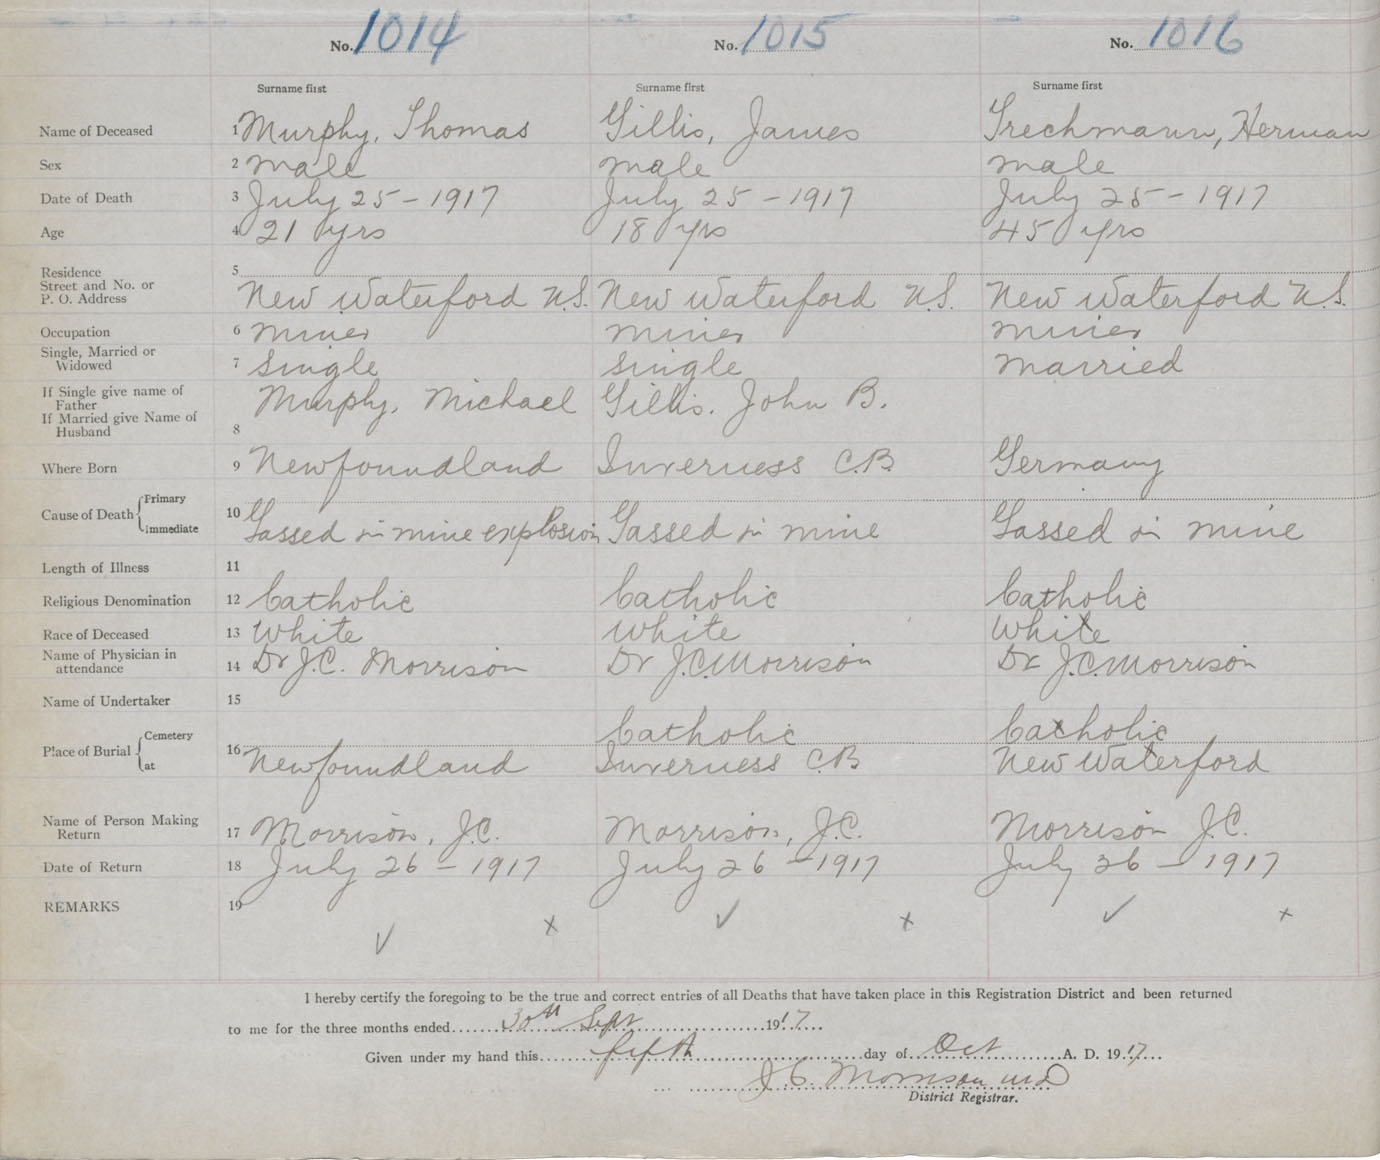 No. 1014 No. 1015 No. 1016
Surname first Surname first Surname first
Name of Deceased 1 Murphy, Thomas Gillis, James Trechmann, Herman
Sex 2 male male male
Date of Death 3 July 25 - 1917 July 25 - 1917 July 25 - 1917
Age 4 21 yrs 18 yrs 45 yrs
Residence 5
Street and No. or
P. O. Address New Waterford N.S. New Waterford N.S. New Waterford N.S.
Occupation 6 miner miner miner
Single, Married or
Widowed 7 Single Single Married
If Single give name of
Father Murphy, Michael Gillis. John B.
If Married give Name of
Husband 8
Where Born 9 Newfoundland Inverness C.B Germany
Cause of Death { Primary
10
Immediate Gassed in mine explosion Gassed in mine Gassed in mine
Length of Illness 11
Religious Denomination 12 Catholic Catholic Catholic
Race of Deceased 13 White White White
Name of Physician in
attendance 14 Dr J.C. Morrison Dr J.C. Morrison Dr J.C. Morrison
Name of Undertaker 15
Place of Burial { Cemetery Catholic Catholic
at 16 Newfoundland Inverness C.B New Waterford
Name of Person Making
Return 17 Morrison, J.C. Morrison, J.C. Morrison J.C.
Date of Return 18 July 26 - 1917 July 26 - 1917 July 26 - 1917
REMARKS 19
✓ x ✓ x ✓ x
I hereby certify the foregoing to be the true and correct entries of all Deaths that have taken place in this Registration District and been returned
to me for the three months ended 30th Sept 1917
Given under my hand this fifth day of Oct A. D. 1917
J C Morrison MD
District Registrar.